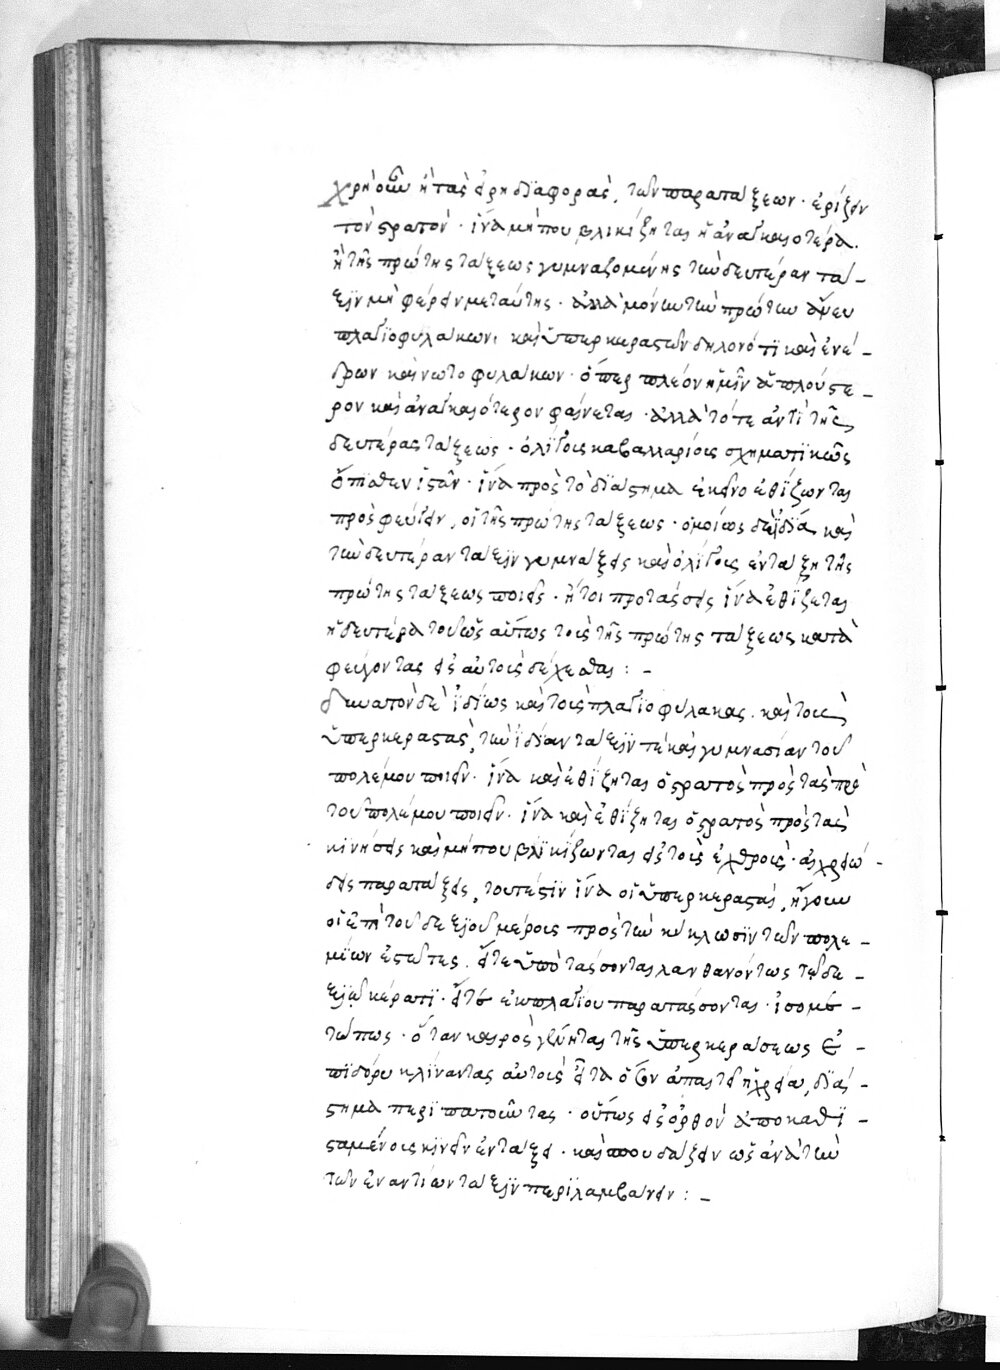 χρὴ οὖν ἢ τὰς εἰρη διαφορὰς, τῶν παρατάξεων· ἐρίζειν
τὸν στρατὸν· ἵνα μήπου βλικίζηται ἡ ἀναγκαιοτέρα.
ἢ τῆς πρώτης τάξεως γυμναζομένης τὴν δευτέραν τά-
ξιν μὴ φέρειν μεταύτης· ἀλλὰ μόνην τὴν πρώτην ἄνευ
πλαγιοφυλάκων, καὶ ὑπερκεραστῶν δηλονότι καὶ ἐνέ-
δρων καὶ νωτοφυλάκων· ὅπερ πλέον ἡμῖν ἁπλούστε-
ρον καὶ ἀναγκαιότερον φαίνεται· ἀλλὰ τότε ἀντὶ τῆς
δευτέρας τάξεως· ὀλίγοις καβαλλαρίοις σχηματικῶς
ὄπιθεν ἱστᾶν· ἵνα πρὸς τὸ διάστημα ἐκεῖνο ἐθίζωνται
προσφεύγειν, οἱ τῆς πρώτης τάξεως· ὁμοίως δὲ ἰδία καὶ
τὴν δευτέραν τάξιν γυμνάζεις καὶ ὀλίγοις ἐν τάξη τῆς
πρώτης τάξεως ποιεῖς· ἤτοι προτάσσεις ἵνα ἐθίζεται
ἡ δευτέρα τούτως αὕτως τοὺς τῆς πρώτης τάξεως κατὰ
φεύγοντας εἰς αὐτοὺς δέχεσθαι : -
δυνατὸν δὲ ἰδίως καὶ τοὺς πλαγιοφύλακας. καὶ τοὺς
ὑπερκεραστὰς, τὴν ἰδίαν τάξιν τὲ καὶ γυμνασίαν τοῦ
πολέμου ποιεῖν· ἵνα καὶ ἐθίζηται ὁ στρατὸς πρὸς τὰς πρὸ
τοῦ πολέμου ποιεῖν· ἵνα καὶ ἐθίζηται ὁ στρατὸς πρὸς τὰς
κινήσεις καὶ μήπου βλικίζωνται εἰς τοὺς ἐχθροὺς· αἱ χρειώ-
δεις παρατάξεις, τουτέστιν ἵνα οἱ ὑπερκερασταὶ, ἤγουν
οἱ ἐπὶ τοῦ δεξιοῦ μέρους πρὸς τὴν κύκλωσιν τῶν πολε-
μίων ἐστῶτες. εἴτε ὑποτάσσονται λανθανόντως τῷ δε-
ξιῷ κέρατι· εἴτε ἐκ πλαγίου παρατάσσονται· ἰσομε-
τώπως· ὅταν καιρὸς γένηται τῆς ὑπερκεράσεως ἐ-
πὶ δόρυ κλίναντας αὐτοὺς εἶτα ὅσον ἀπαιτεῖ ἡ χρεία, διά-
στημα περιπατοῦντας· οὕτως εἰς ὀρθὸν ἀποκαθι-
σταμένοις κινεῖν ἐν τάξει· καὶ σπουδάζειν ὡς ἀνὰ τὴν
τῶν ἐναντίων τάξιν περιλαμβάνειν : -